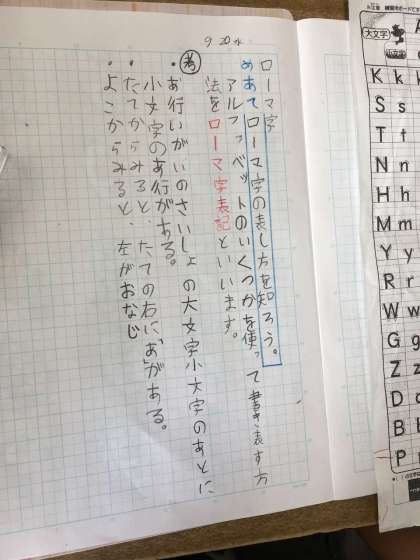 9 20 水
ローマ字
めあてローマ字の表し方を知ろう。
アルファベットのいくつかを使って書き表す方
法をローマ字表記といいます。
考
・あ行いがいのさいしょの大文字小文字のあとに
小文字のあ行がある。
・たてからみると、たての右に、あがある。
・よこからみると、左がおなじ
大文字
小文字
A
K k
S s
T t
N n
H h
M m
Y y
R r
W w
G g
Z z
D d
B b
P p